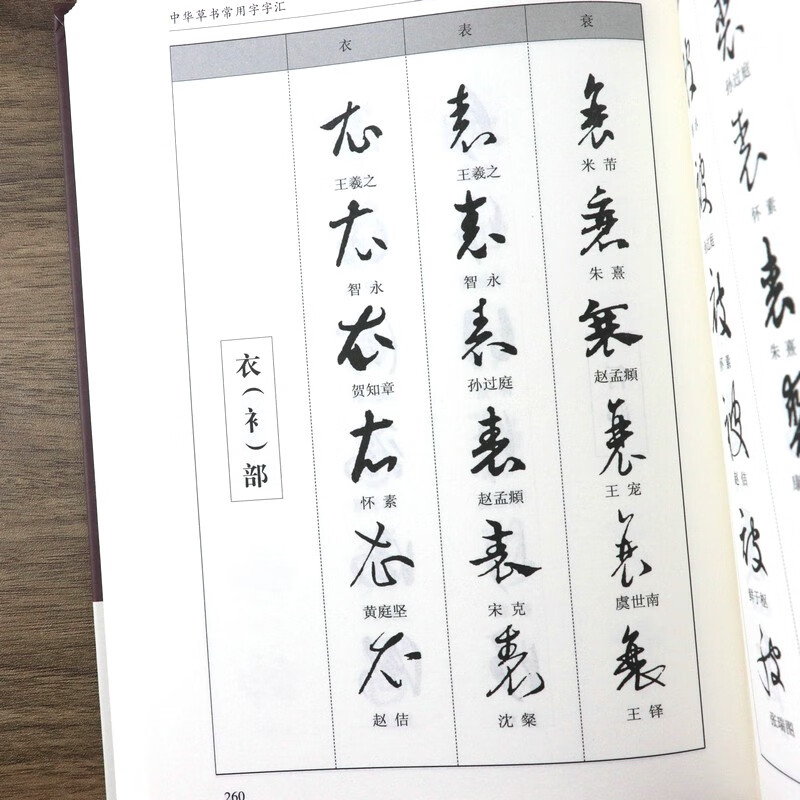 中华草书常用字字汇
衣 表 衰
衣 表 衰
王羲之 王羲之 米芾
衣 表 衰
智永 智永 朱熹
衣 表 衰
贺知章 孙过庭 赵孟頫
衣 表 衰
怀素 赵孟頫 王宠
衣 表 衰
黄庭坚 宋克 虞世南
衣 表 衰
赵佶 沈粲 王铎
衣(衤)部
260
表
孙过庭
表
怀素
表
朱熹
被
被
被
怀素
被
赵佶
被
鲜于枢
被
张瑞图